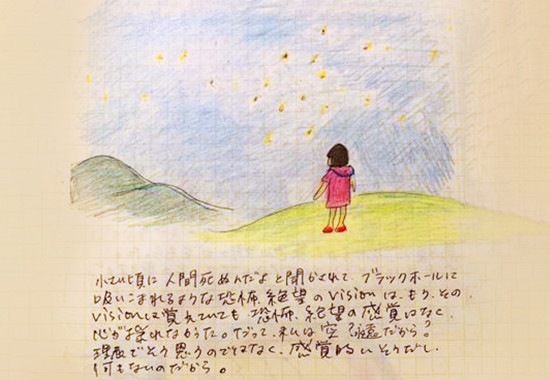 小さい頃に人間死ぬんだよと聞かされて、ブラックホールに
吸いこまれるような恐怖、絶望のVisionは、もう、その
Visionは覚えていても恐怖、絶望の感覚はなく、
心が揺れなかった。だって、私は空
理屈でそう思うのではなく、感覚的にそうだし、
何もないのだから。